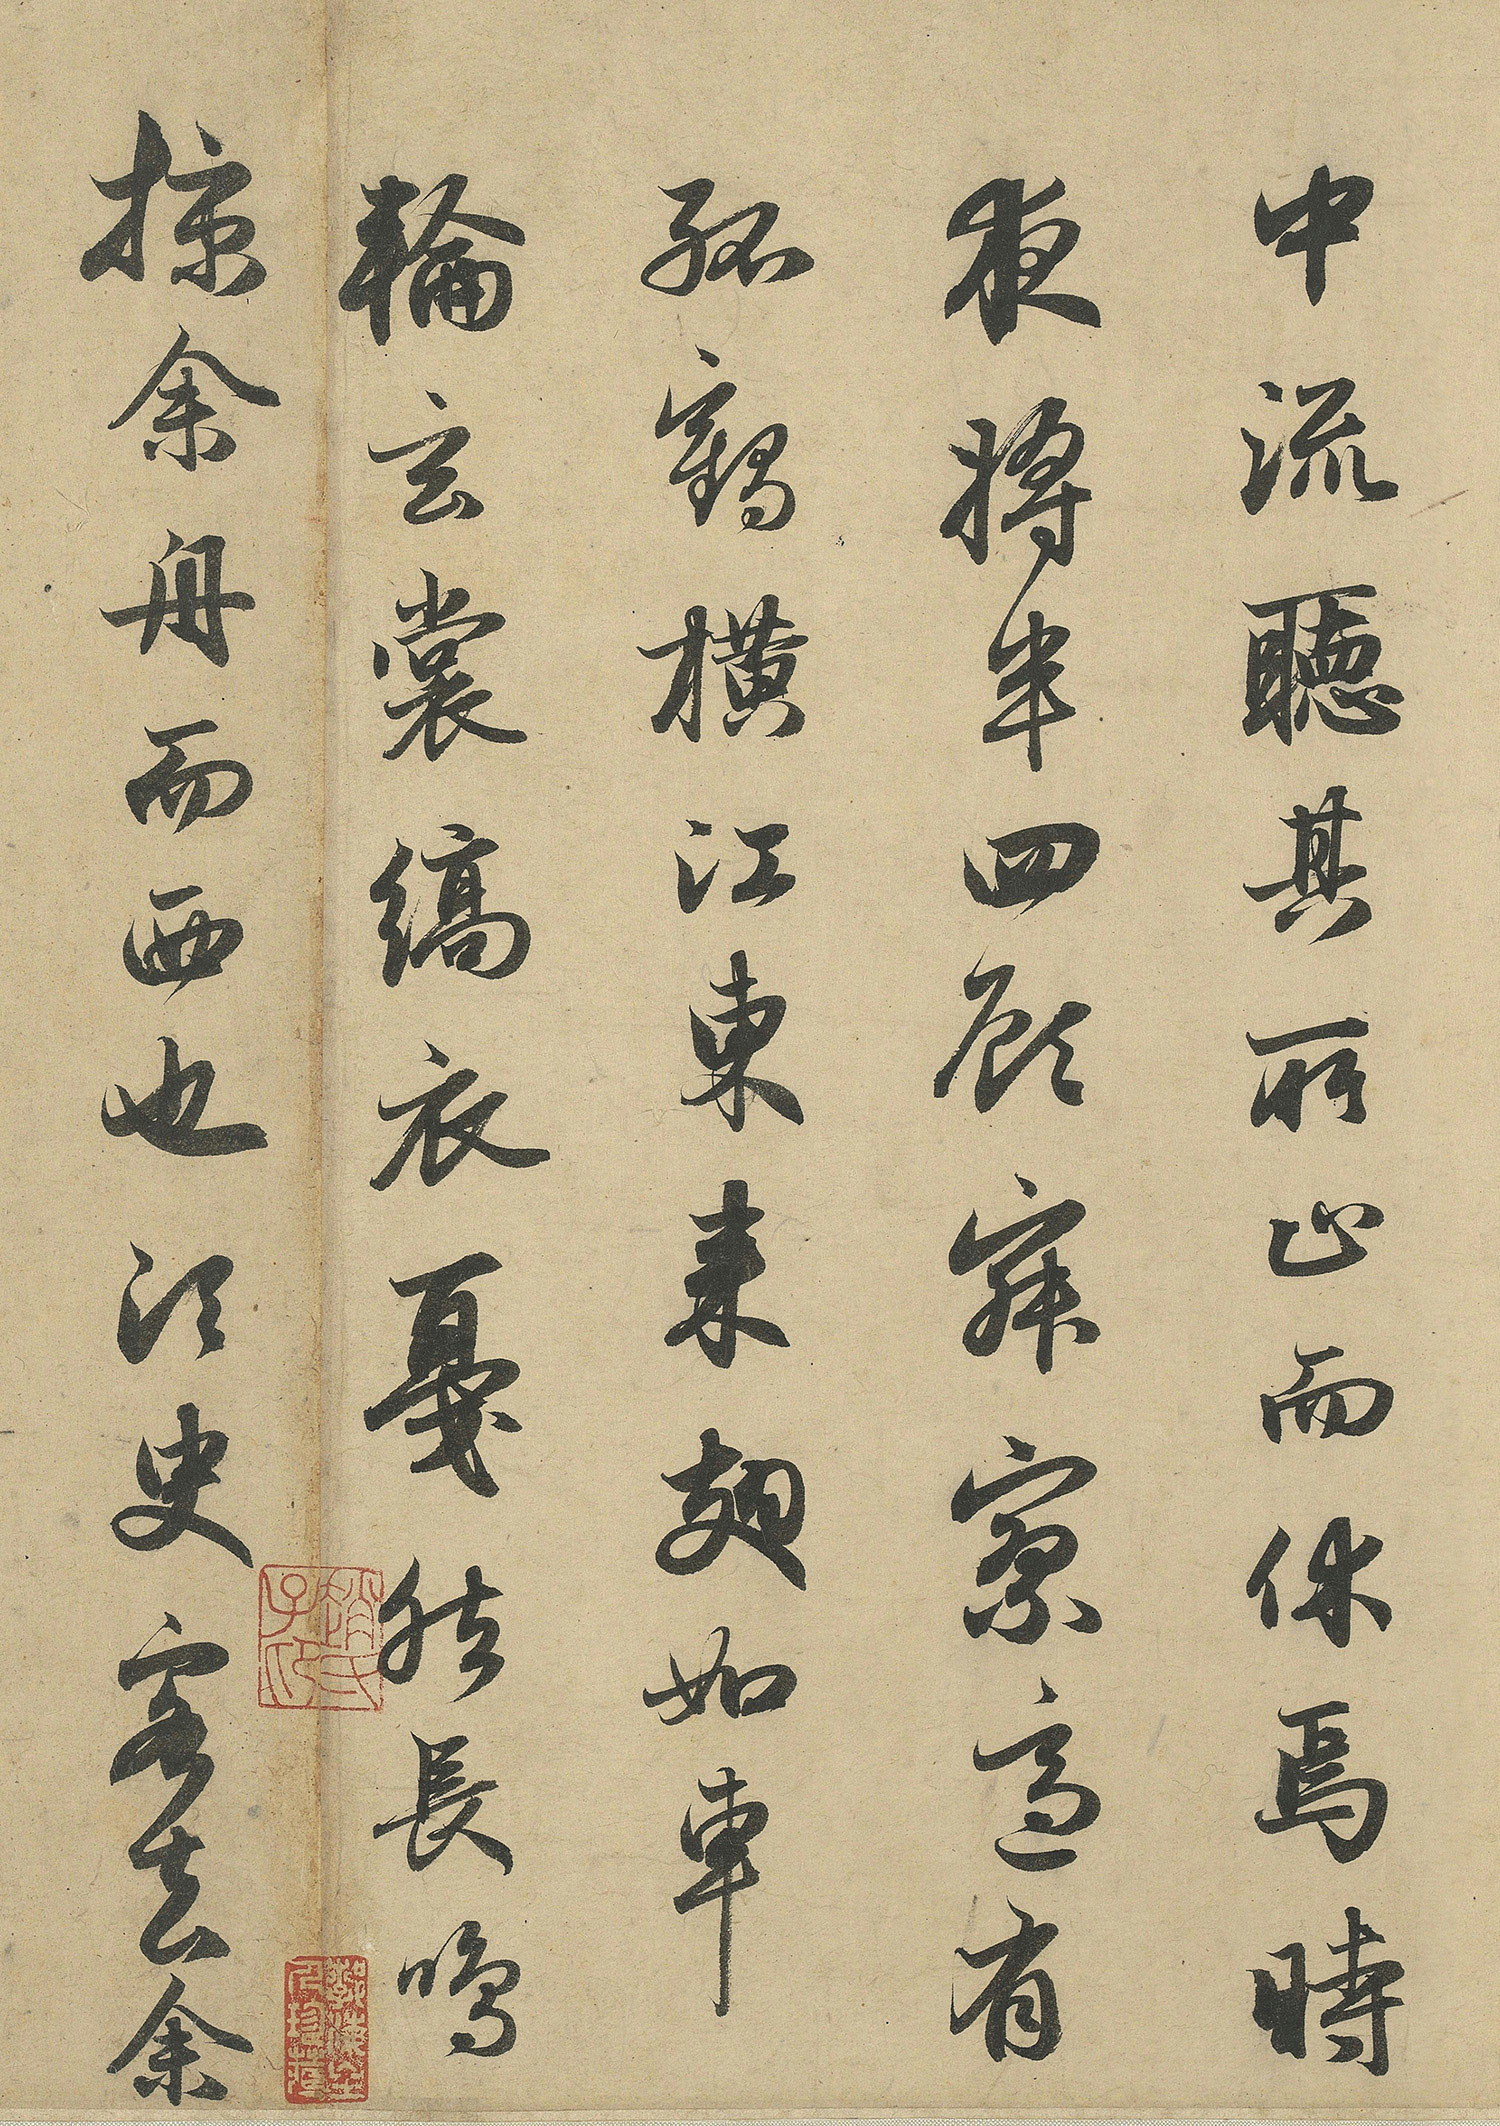 中流聽其所止而休焉時
夜將半四顧寂寥適有
孤鶴橫江東來翅如車
輪玄裳縞衣戛然長鳴
掠余舟而西也須臾客去余
趙氏子印